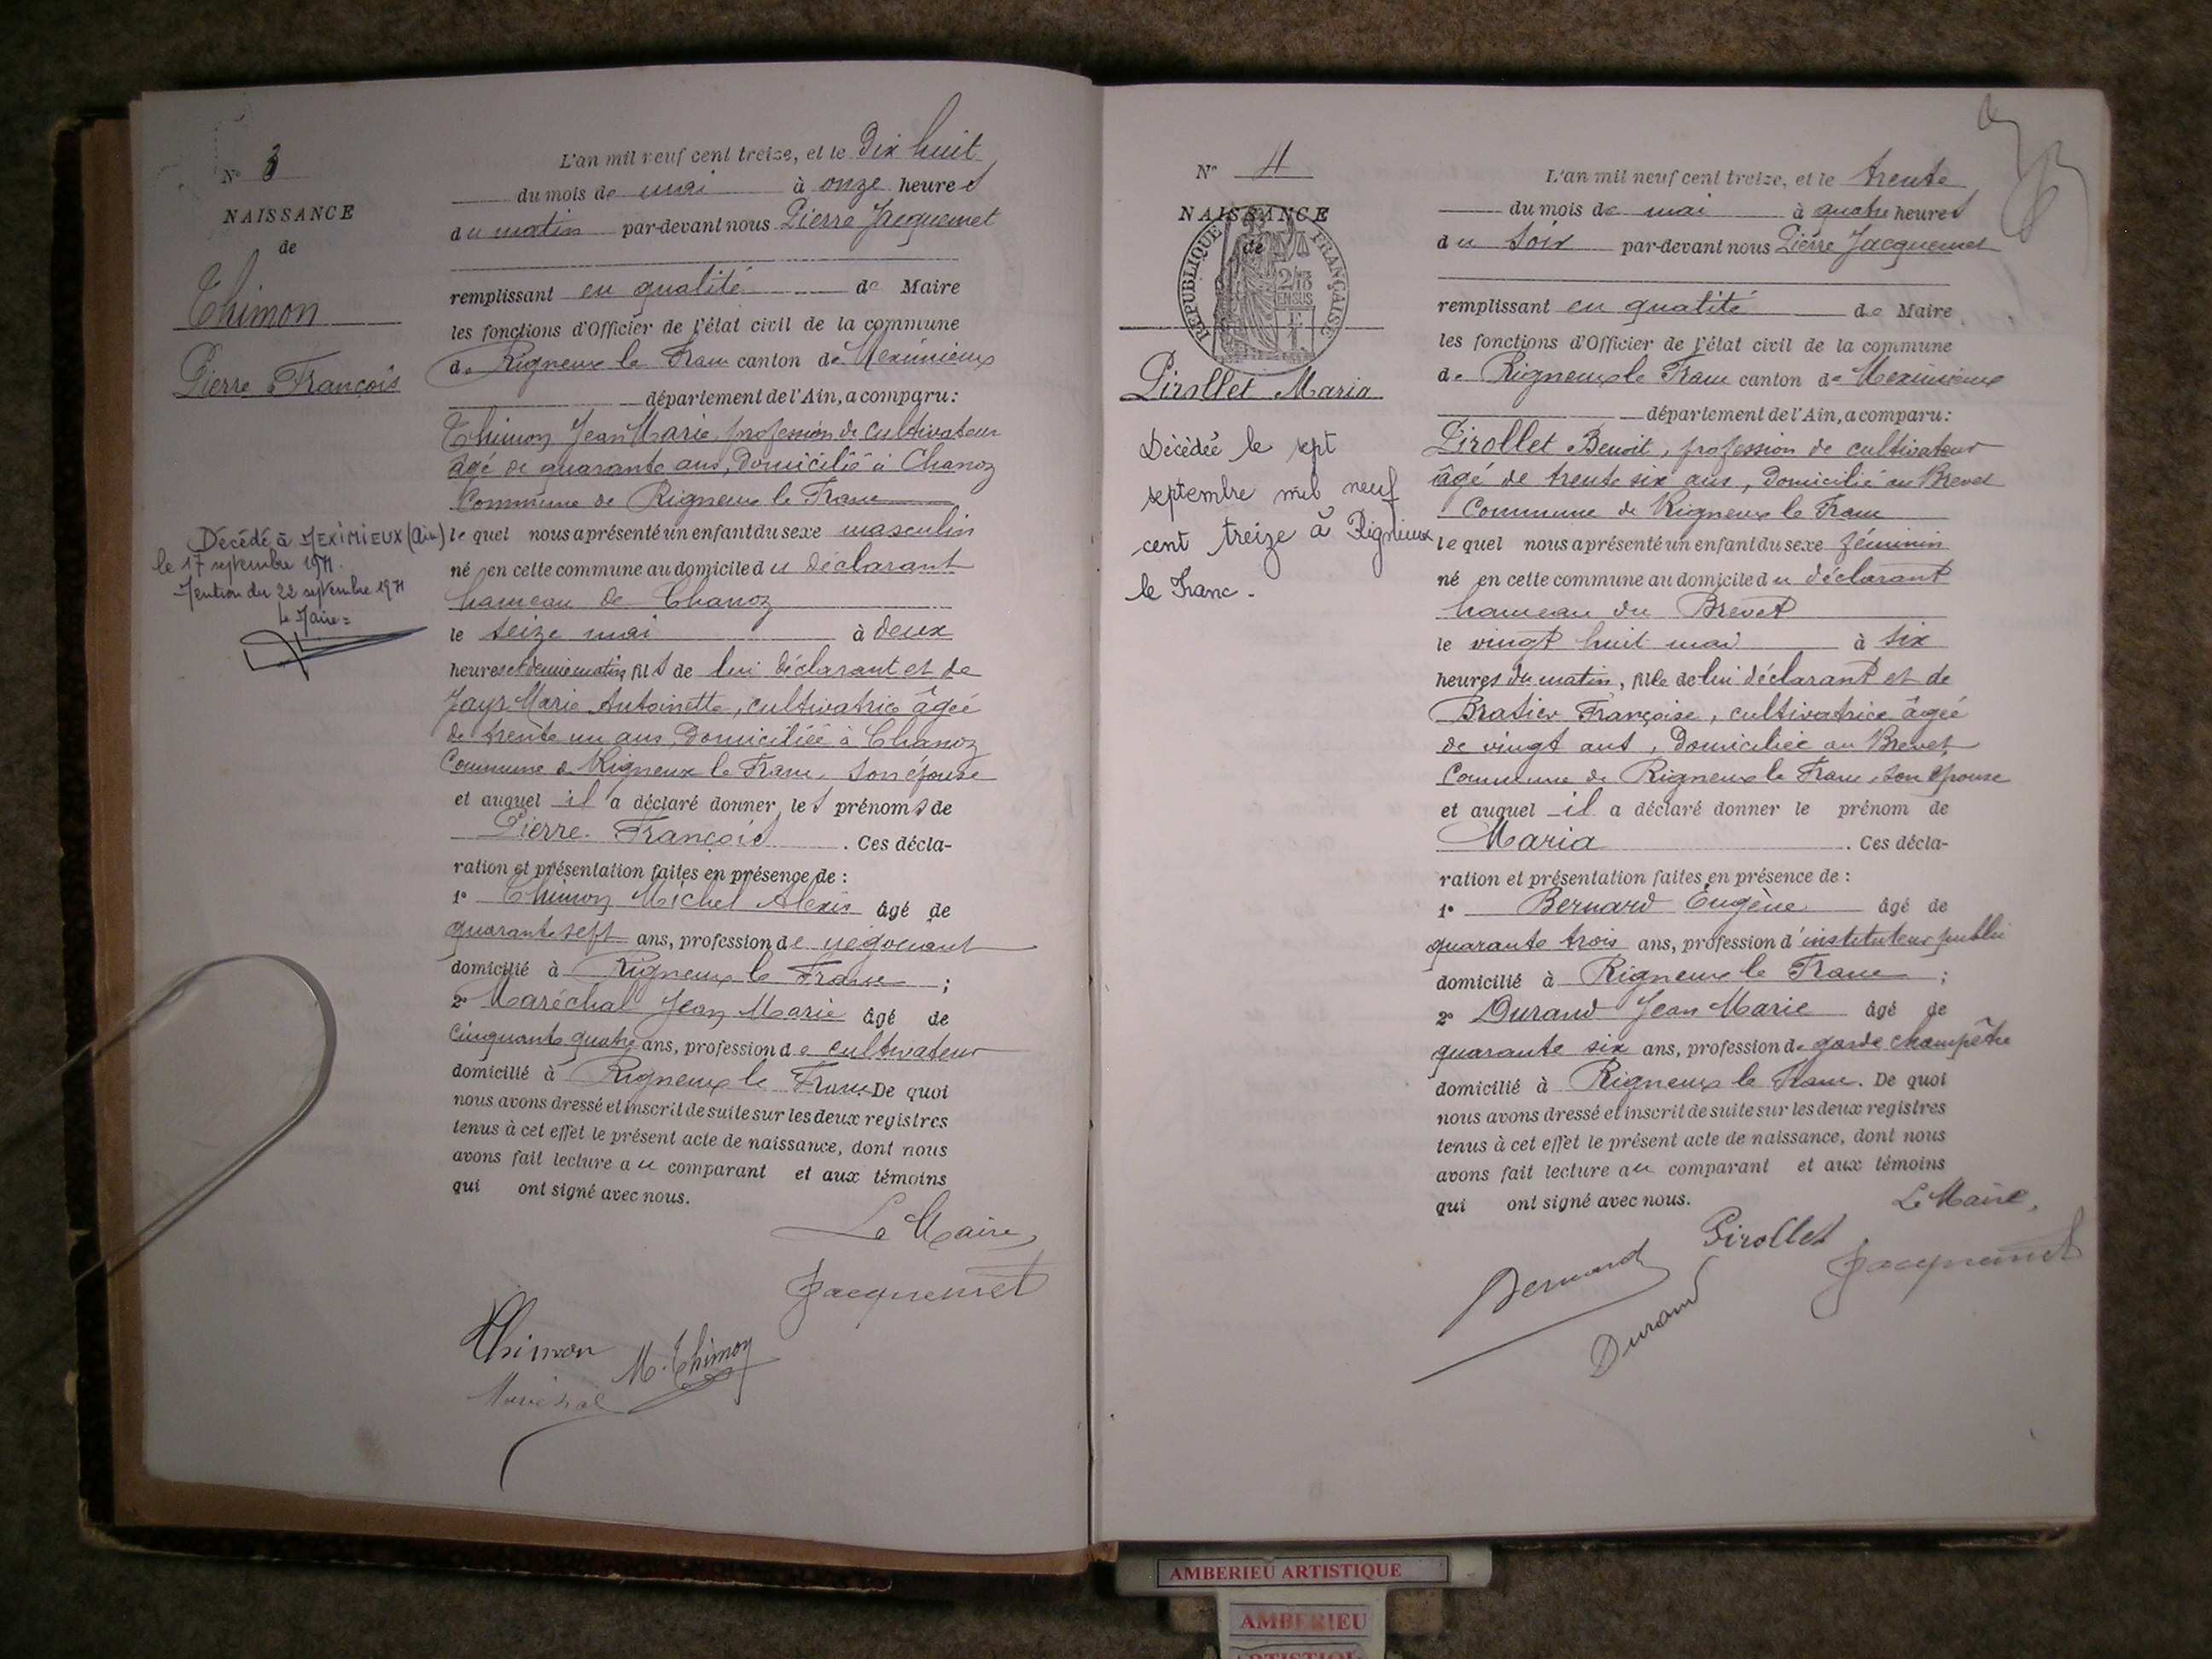 N° 3
NAISSANCE
de
Thimon
Pierre François
Décédé à MEXIMIEUX (Ain)
le 17 septembre 1971.
Mention du 22 septembre 1971
Le Maire =
L'an mil neuf cent treize, et le Dix huit
du mois de mai à onze heures
du matin par-devant nous Pierre Jacquemet
remplissant en qualité de Maire
les fonctions d'Officier de l'état civil de la commune
de Rigneux le Franc canton de Meximieux
département de l'Ain, a comparu :
Thimon Jean Marie, profession de cultivateur
âgé de quarante ans, Domicilié à Chanoz
Commune de Rigneux le Franc
le quel nous a présenté un enfant du sexe masculin
né en cette commune au domicile du déclarant
hameau de Chanoz
le seize mai à deux
heures et demie matin, fils de lui déclarant et de
Jayr Marie Antoinette, cultivatrice âgée
de trente un ans, Domiciliée à Chanoz
Commune de Rigneux le Franc, son épouse
et auquel il a déclaré donner les prénoms de
Pierre François . Ces décla-
ration et présentation faites en présence de :
1° Thimon Michel Alexis âgé de
quarante sept ans, profession de négociant
domicilié à Rigneux le Franc ;
2° Maréchal Jean Marie âgé de
cinquante quatre ans, profession de cultivateur
domicilié à Rigneux le Franc. De quoi
nous avons dressé et inscrit de suite sur les deux registres
tenus à cet effet le présent acte de naissance, dont nous
avons fait lecture au comparant et aux témoins
qui ont signé avec nous.
Le Maire,
Jacquemet
Thimon M. Thimon
Maréchal
N° 4
NAISSANCE
de
REPUBLIQUE FRANÇAISE
2/10 EN SUS
Pirollet Maria
Décédée le sept
septembre mil neuf
cent treize à Rignieux
le Franc.
L'an mil neuf cent treize, et le trente
du mois de mai à quatre heures
du soir par-devant nous Pierre Jacquemet
remplissant en qualité de Maire
les fonctions d'Officier de l'état civil de la commune
de Rigneux le Franc canton de Meximieux
département de l'Ain, a comparu :
Pirollet Benoit, profession de cultivateur
âgé de trente six ans, Domicilié au Brevet
Commune de Rigneux le Franc
le quel nous a présenté un enfant du sexe féminin
né en cette commune au domicile du déclarant
hameau du Brevet
le vingt huit mai à six
heures du matin, fille de lui déclarant et de
Bratier Françoise, cultivatrice âgée
de vingt ans, Domiciliée au Brevet
Commune de Rigneux le Franc, son épouse
et auquel il a déclaré donner le prénom de
Maria . Ces décla-
ration et présentation faites en présence de :
1° Bernard Eugène âgé de
quarante trois ans, profession d'instituteur public
domicilié à Rigneux le Franc ;
2° Durand Jean Marie âgé de
quarante six ans, profession de garde champêtre
domicilié à Rigneux le Franc. De quoi
nous avons dressé et inscrit de suite sur les deux registres
tenus à cet effet le présent acte de naissance, dont nous
avons fait lecture au comparant et aux témoins
qui ont signé avec nous.
Le Maire,
Bernard Pirollet Jacquemet
Durand
AMBERIEU ARTISTIQUE
AMBERIEU
ARTISTIQUE